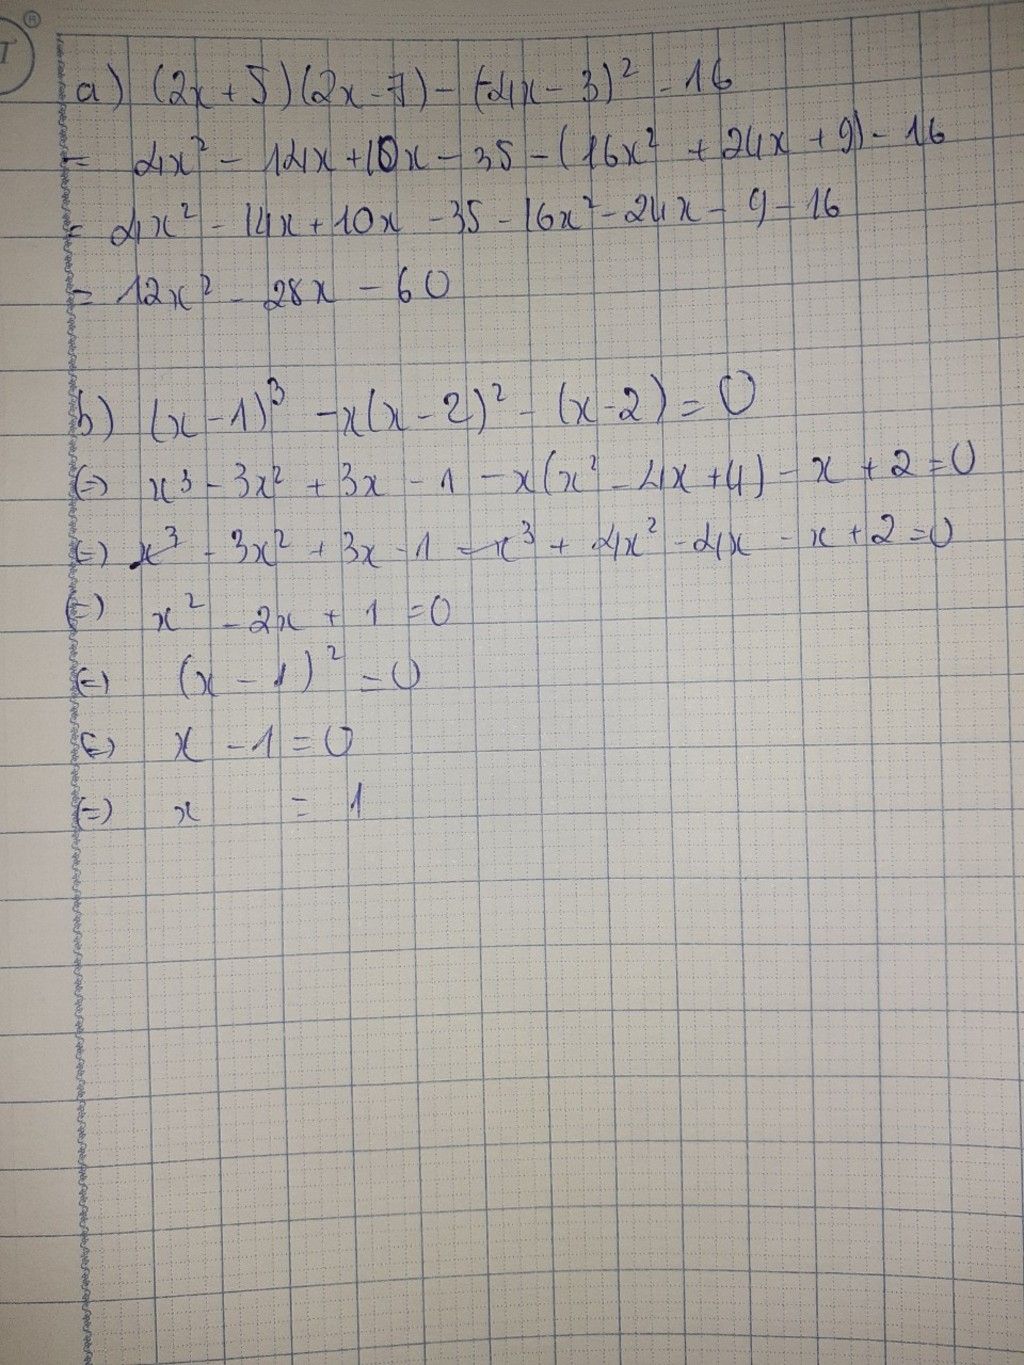 a) (2x + 5)(2x - 7) - (-4x - 3)² - 16
= 4x² - 14x + 10x - 35 - (16x² + 24x + 9) - 16
= 4x² - 14x + 10x - 35 - 16x² - 24x - 9 - 16
= 12x² - 28x - 60
b) (x - 1)³ - x(x - 2)² - (x - 2) = 0
(=) x³ - 3x² + 3x - 1 - x(x² - 4x + 4) - x + 2 = 0
(=) x³ - 3x² + 3x - 1 - x³ + 4x² - 4x - x + 2 = 0
(=) x² - 2x + 1 = 0
(=) (x - 1)² = 0
(=) x - 1 = 0
(=) x = 1